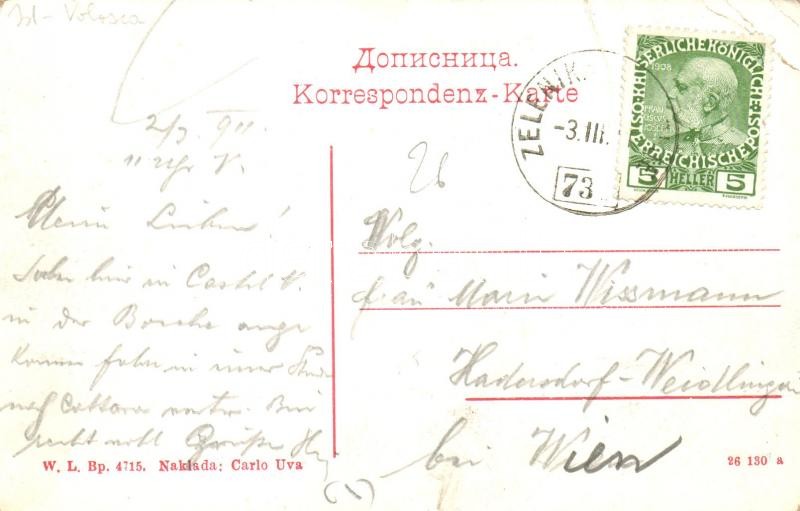 Ist - Volosca
Дописница.
Korrespondenz-Karte
ZELENIK
-3.III.
73
KAISERLICHE KÖNIGLICHE
1908
ÖSTERREICHISCHE POST
5 HELLER 5
2/3 911
11 Uhr V.
Meine Lieben!
hier in Castel N.
in der Bocche ange
komen fahre in einer Stunde
nach Cattaro weiter. Bin
recht Grüße
Wolg.
Frau Marie Wissmann
Hadersdorf-Weidlingau
bei Wien
W. L. Bp. 4715. Naklada; Carlo Uva
26 130 a
(V)